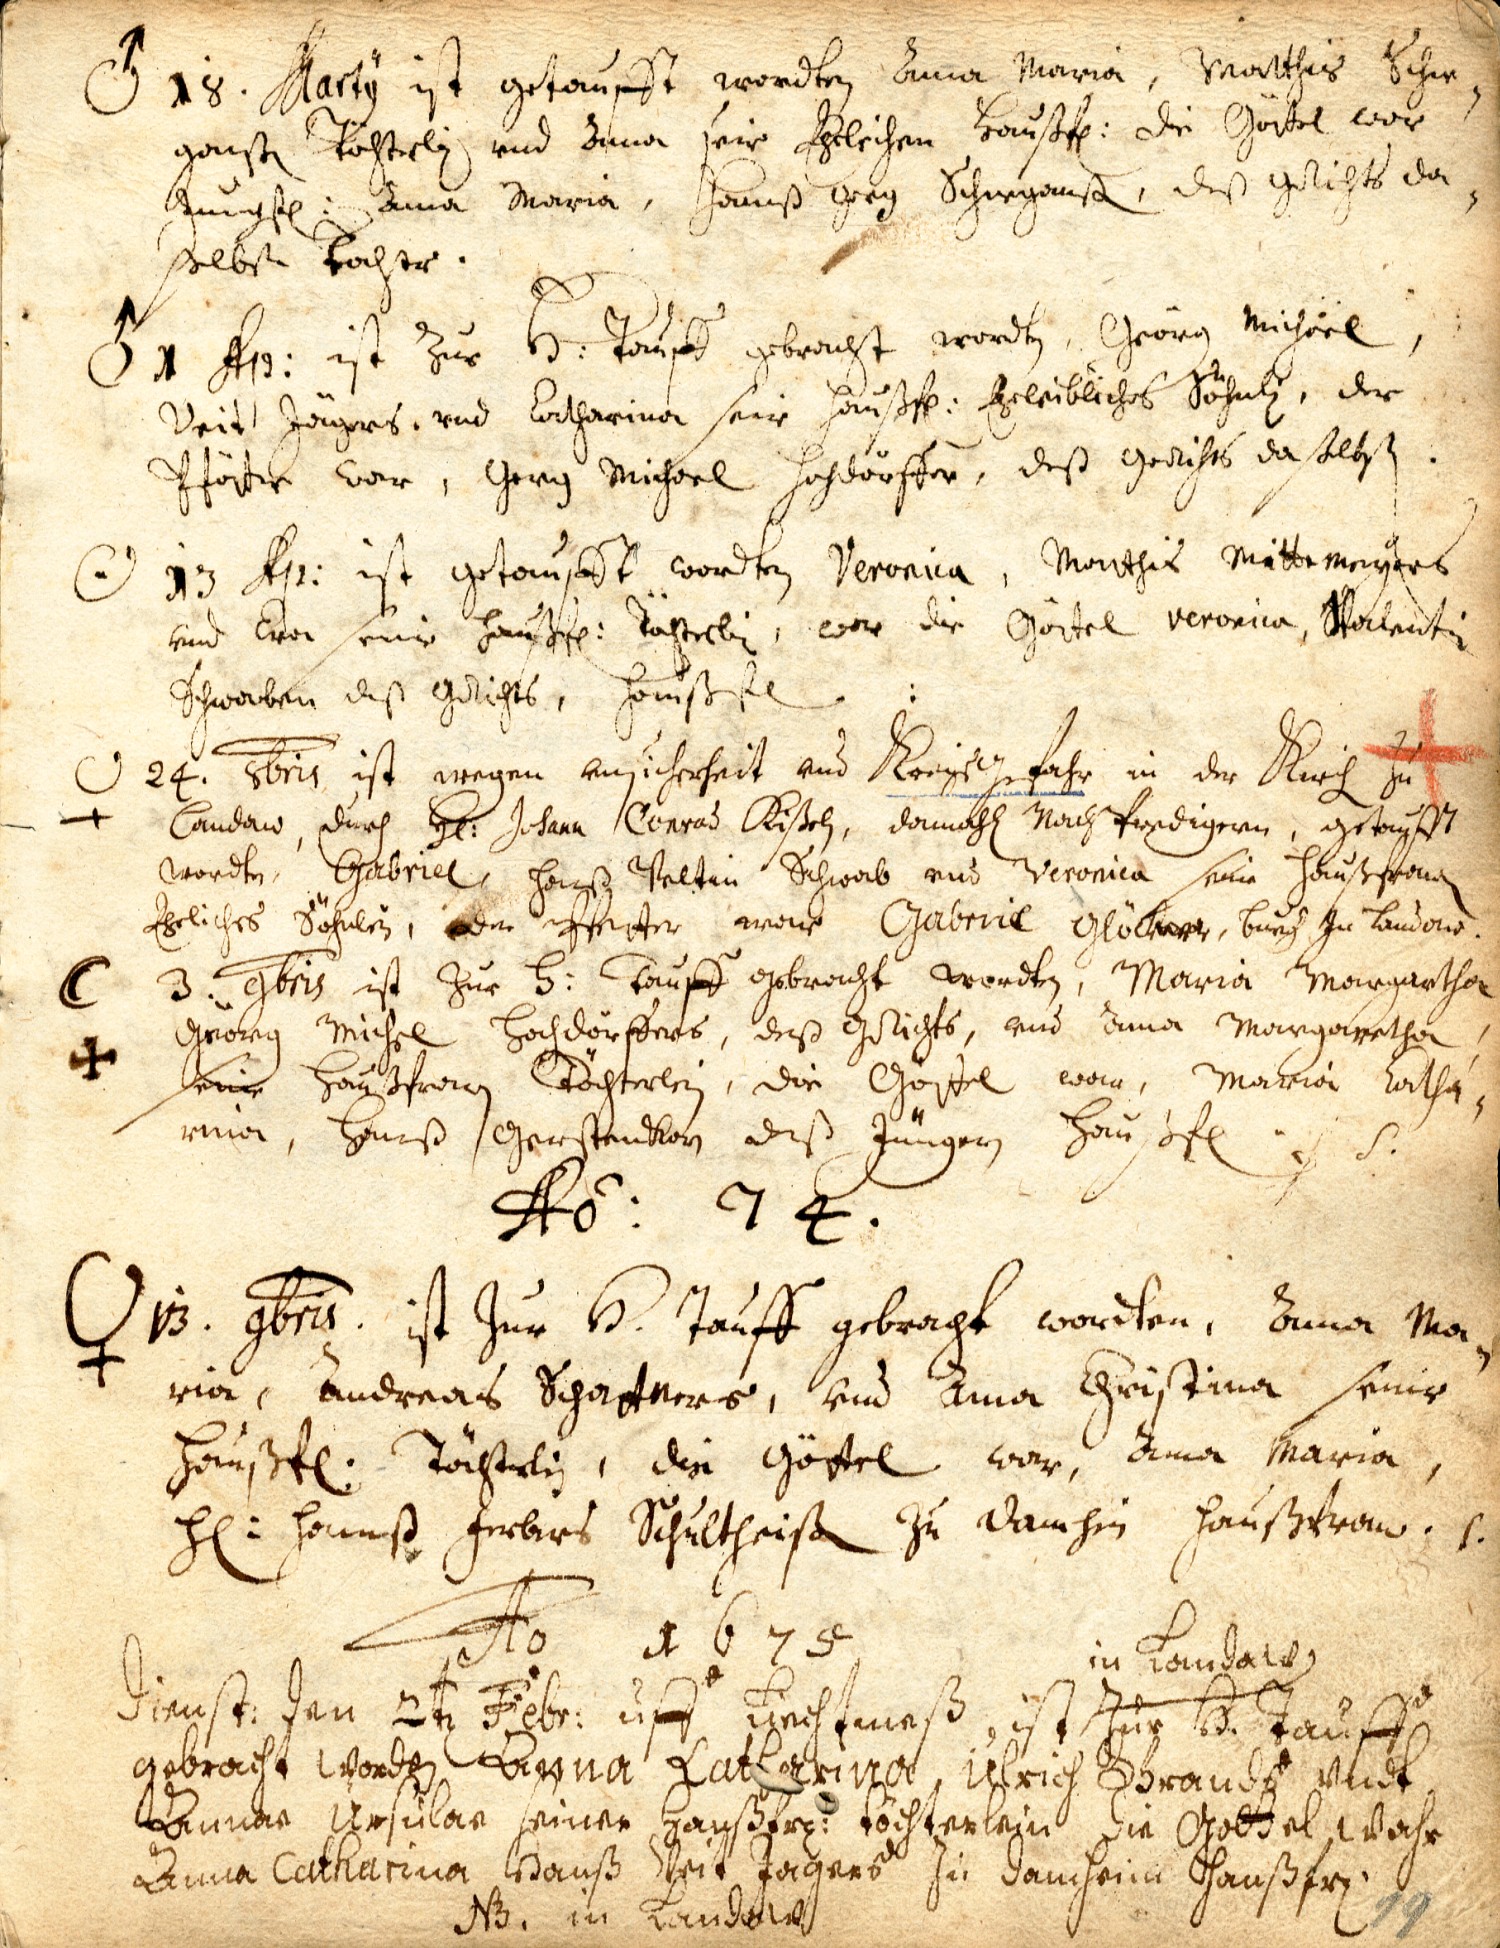 ♂ 18. Marty ist getaufft wordten Anna Maria, Matthis Schw-
ganß Töchterlin vnd Anna seir Eheleichen Haußfr: die Göttel war
Jungfr: Anna Maria, Hannß Gerg Schwganß, deß Gerichts da-
selbst Tochter.
♂ 1 Apr: ist zur H: Tauff gebracht wordten, Geörg Michael,
Veit Jägers, vnd Catharina seir Haußfr: Eheleibliches Söhnlin, der
Pfötter war, Gerg Michael Hochdörffer, deß Gerichts daselbst.
☉ 13 Apr: ist getaufft wordten Veronica, Matthis Mittemeyers
vnd Eva seir Haußfr: Töchterlin, war die Göttel Veronica, Valentin
Schwaben deß Gerichts, Haußfr.
♀ 24. 8bris ist wegen vnsicherheit vnd Kriegsgefahr in der Kirch zu
Landaw, durch Hr: Johann Conrad Kißeln, damahls Nachpredigern, getaufft
wordten, Gabriel, Hanß Veltin Schwab vnd Veronica seir Haußfrawen
Eheliches Söhnlein, der Pfetter war Gabriel Glöckner, burger zu Landaw.
☾ 3. 9bris ist zur H: Tauff gebracht wordten, Maria Margartha
Geörg Michel Hochdörffers, deß Gerichts, vnd Anna Margaretha,
seir Haußfrawen Töchterlein, die Göttel war, Maria Catha-
rina, Hanß Gerstenkorn deß Jüngern Haußfr
Ao: 74.
♀ 13. 9bris. ist zur H. Tauff gebracht wordten, Anna Ma-
ria, Andreas Schattners, vnd Anna Christina seir
Haußfr: Töchterlin, die Göttel war, Anna Maria,
Hr: Hannß Ferbers Schultheiß zu Damheim Haußfraw. f.
Ao 1675
in Landaw
Dienst: den 2tn Febr: uff Liechtmeß, ist zur H. Tauff
gebracht worden Anna Catharina, Ulrich Brands vndt
Annae Ursulae seiner Haußfr: töchterlein die Gottel wahr
Anna Catharina Hanß Veit Jägers zu Damheim Haußfr.
NB. in Landaw
99